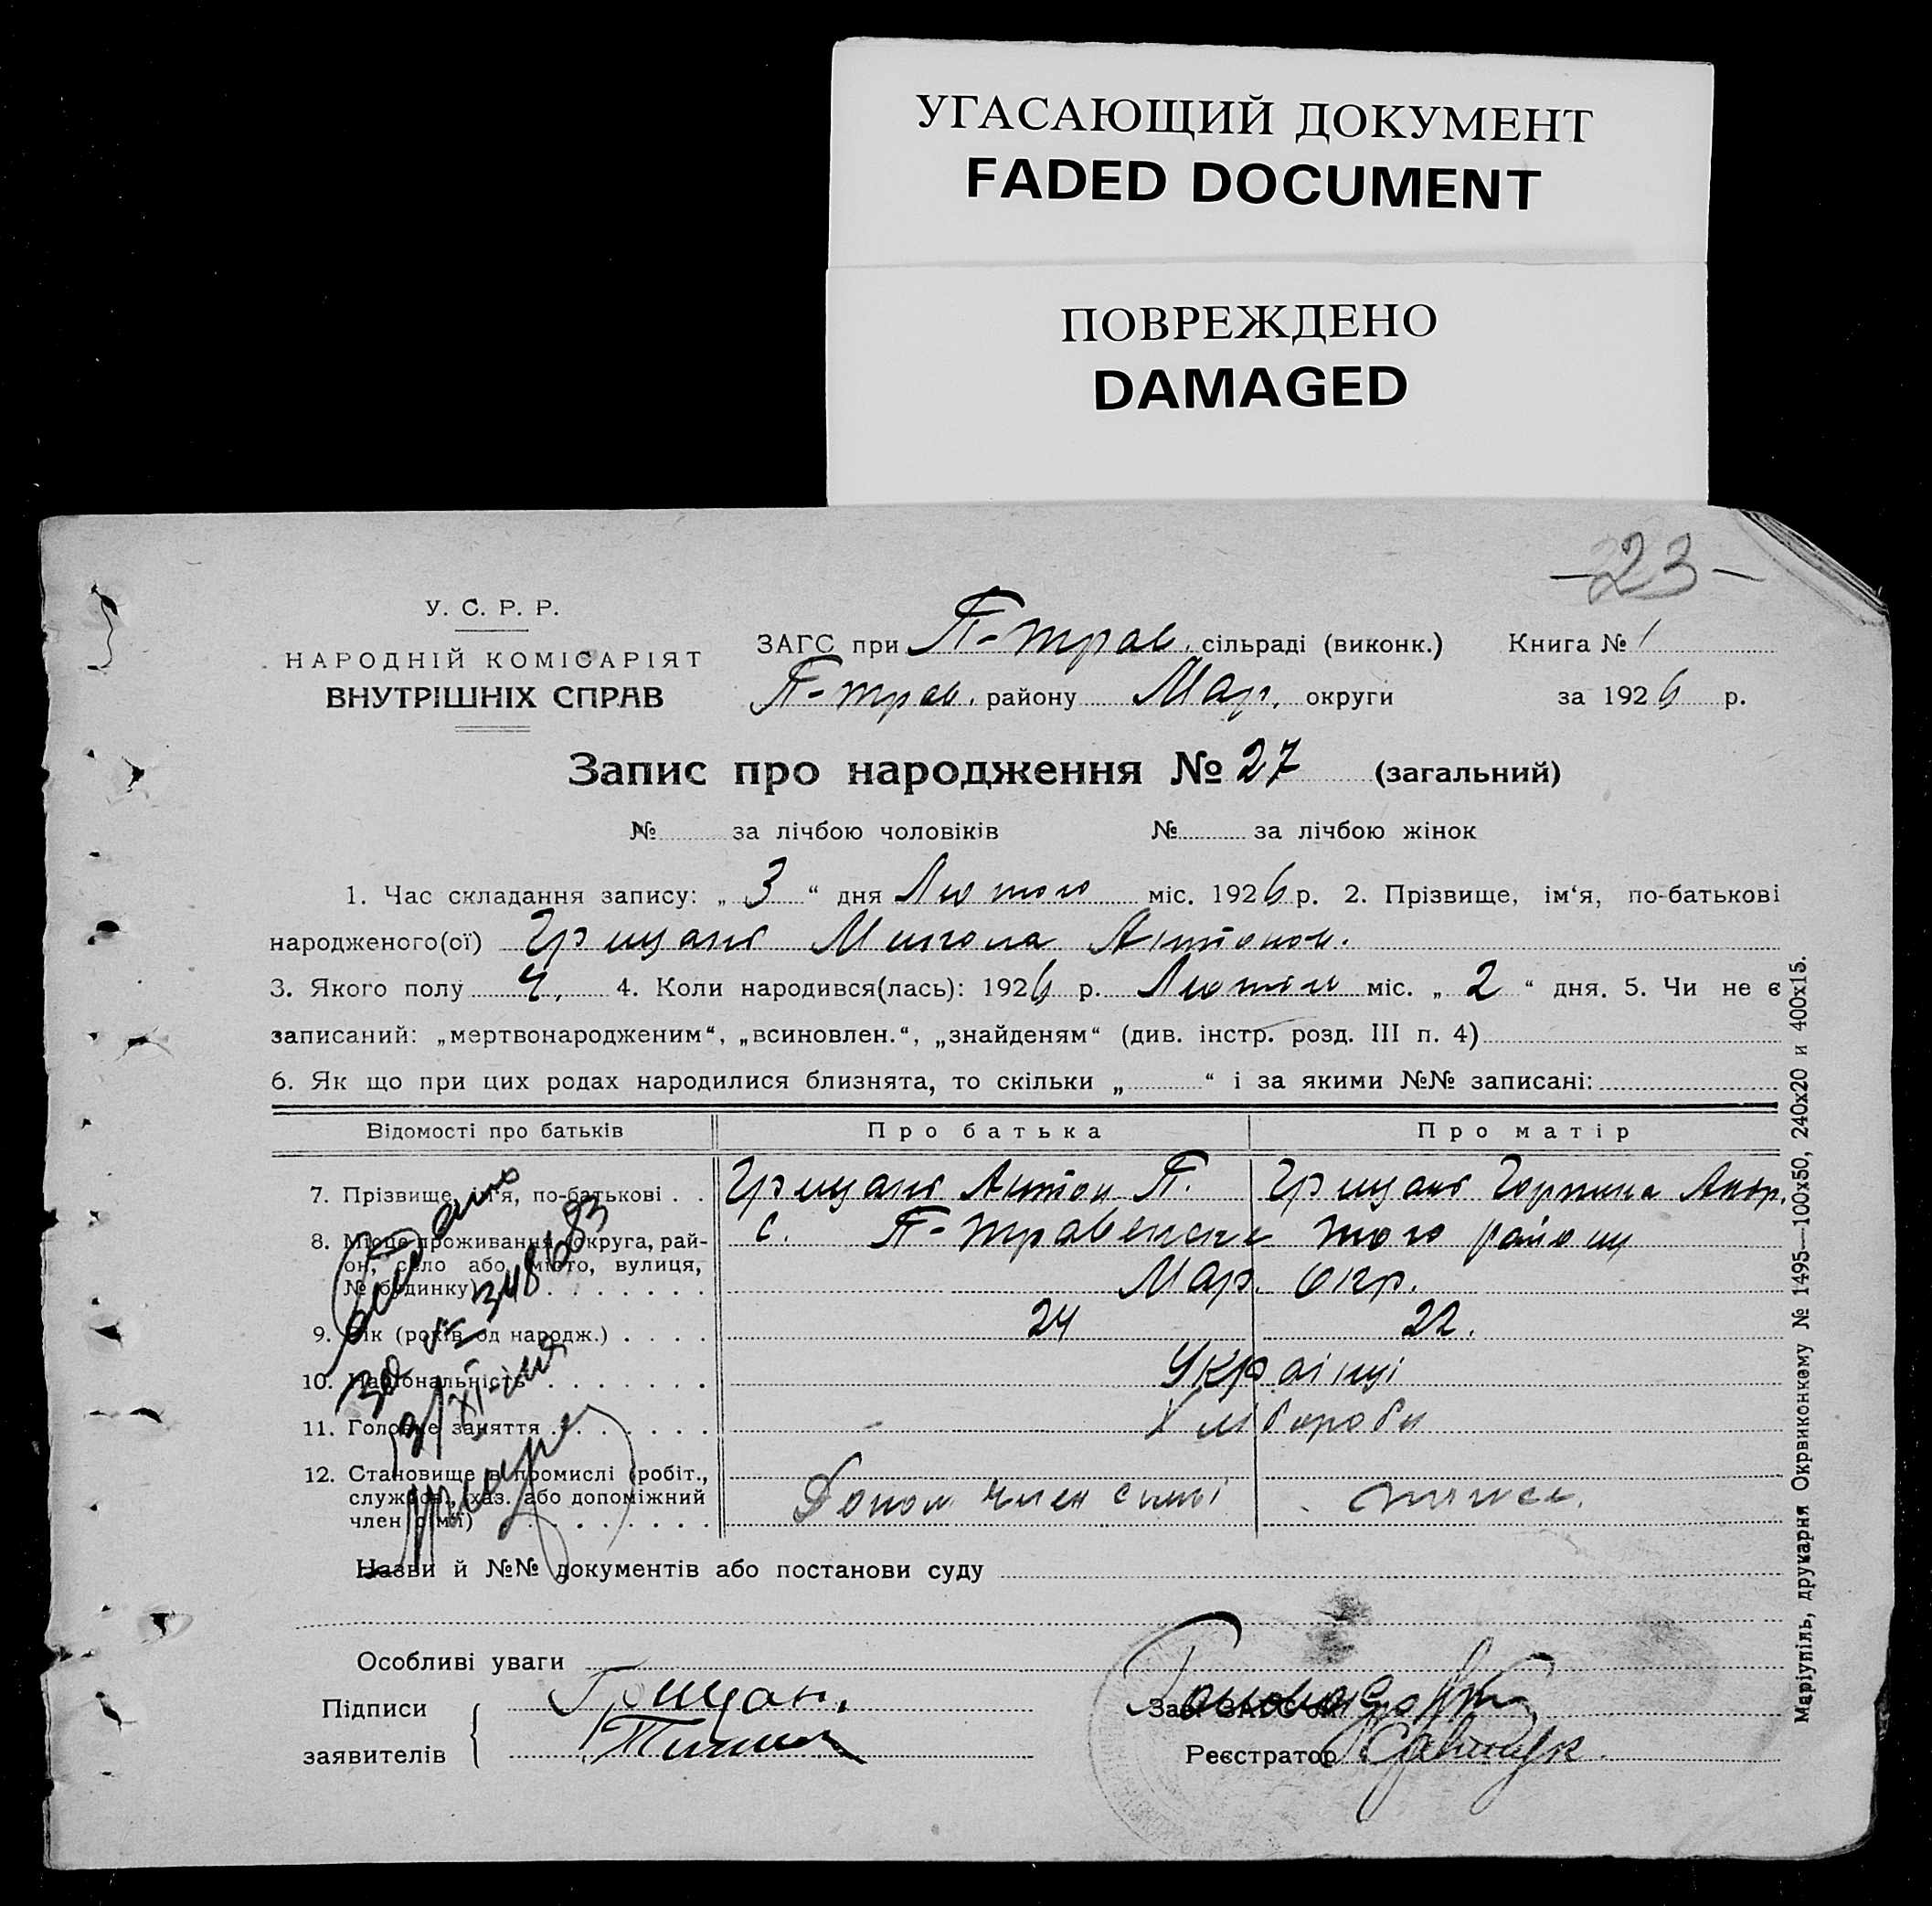 УГАСАЮЩИЙ ДОКУМЕНТ
FADED DOCUMENT
ПОВРЕЖДЕНО
DAMAGED
-23-
У. С. Р. Р.
НАРОДНІЙ КОМІСАРІЯТ
ВНУТРІШНІХ СПРАВ
ЗАГС при П-трав. сільраді (виконк.) Книга № 1
П-трав. району Мар. округи за 1926 р.
Запис про народження № 27 (загальний)
№ за лічбою чоловіків № за лічбою жінок
1. Час складання запису: „ 3 “ дня Лютого міс. 1926 р. 2. Прізвище, ім‘я, по-батькові
народженого(ої) Грицанъ Микола Антонов.
3. Якого полу Ч. 4. Коли народився(лась): 1926 р. міс. „ 2 “ дня. 5. Чи не є
записаний: „мертвонародженим“, „всиновлен.“, „знайденям“ (див. інстр. розд. III п. 4)
6. Як що при цих родах народилися близнята, то скільки „ “ і за якими №№ записані:
Відомості про батьків Про батька Про матір
7. Прізвище, ім‘я, по-батькові . . Грицанъ Антон П. Грицанъ Горпина Андр.
8. Місце проживання (округа, рай-
он, село або місто, вулиця,
№ будинку) . . . . . . .
с. П- того району
Мар. окр.
9. Вік (років од народж.) . . . . 24 22.
10. Національність . . . . . . . Українці
11. Головне заняття . . . . . . . Хлібороби
12. Становище в промислі (робіт.,
службов., хаз. або допоміжний
член сімї) . . . . . . .
Допом. член сим'ї
Видано
348683
Назви й №№ документів або постанови суду
Особливі уваги
Підписи
заявителів
Грицан.
Зав. ЗАГС'ом
Реєстратор
Маріупіль, друкарня Окрвиконкому № 1495—100х50, 240х20 и 400х15.